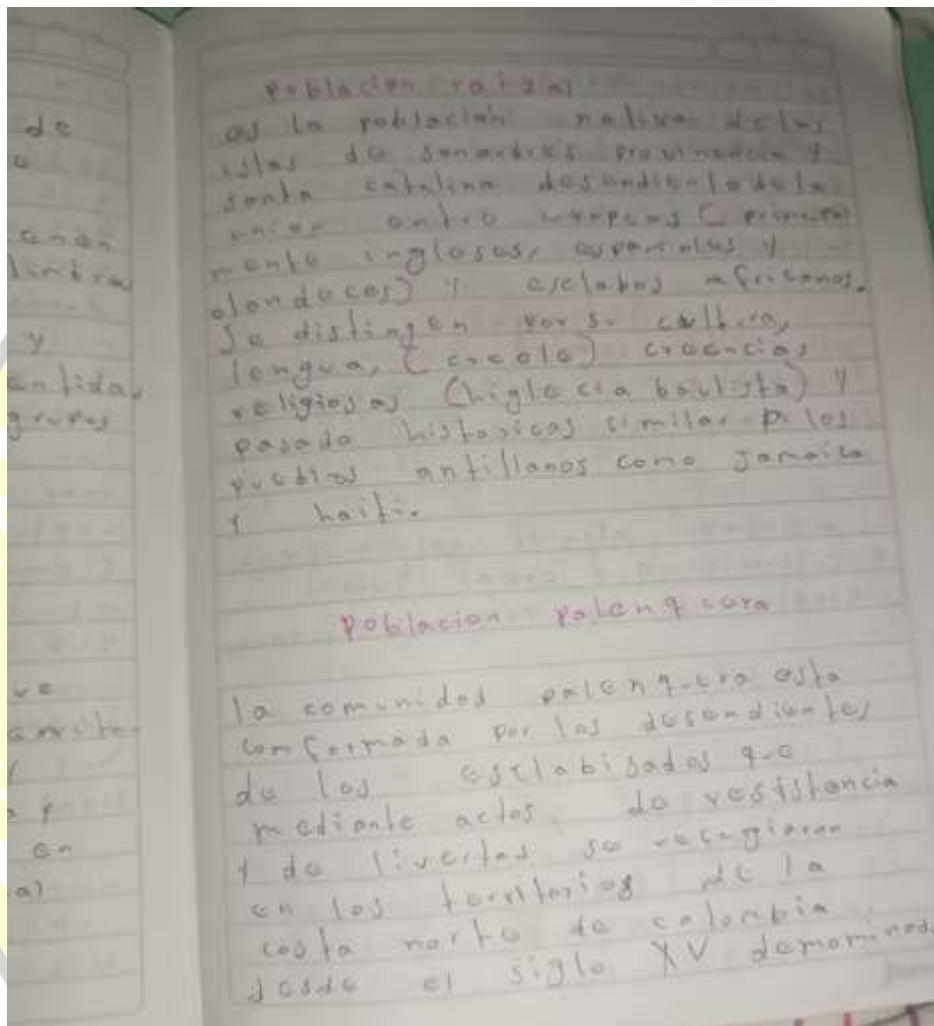 de
anan
y
grupos
en
al
poblacion raizal
es la poblacion nativa delas
islas de sanandres provinencia y
santa catalina desendientedela
union entre uropeos ( principal
mente ingloses, españoles y
olandeces) y esclabos africanos.
Se distingen por su cultura,
lengua, (creole) creencias
religiosas (higlecia bautista) y
pasado historicos similar a los
pueblos antillanos como Jamaica
y haiti.
poblacion palenquera
la comunidad palenquera esta
conformada por los desendientes
de los esclabisados que
mediante actos de resistencia
y de livertad se refugiaron
en los territorios de la
costa norte de colombia
desde el siglo XV denominad